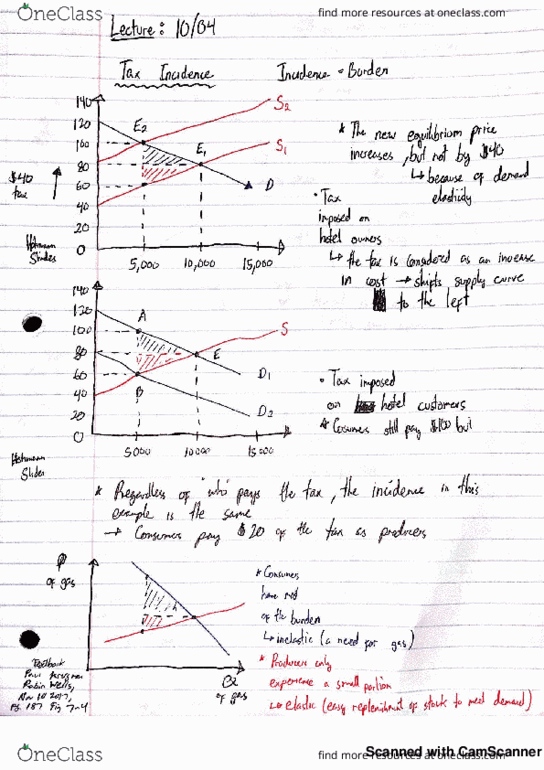 OneClass
find more resources at oneclass.com
Lecture: 10/04
Tax Incidence
Incidence = Burden
140
120
100
80
60
40
20
0
5,000
10,000
15,000
$40
tax
E2
E1
S2
S1
D
* The new equilibrium price
increases, but not by $40
↳ because of demand
elasticity
• Tax
imposed on
hotel owners
↳ the tax is considered as an increase
in cost → shifts supply curve
to the left
Slides
140
120
100
80
60
40
20
0
5000
10000
15000
A
B
E
S
D1
D2
• Tax imposed
on hotel customers
* Consumers still pay $100 but
Slides
* Regardless of "who" pays the tax, the incidence in this
example is the same
→ Consumers pay $20 of the tax as producers
P
of gas
Q
of gas
* Consumers
have most
of the burden
↳ inelastic (a need for gas)
* Producers only
experience a small portion
↳ elastic (easy replenishment of stocks to meet demand)
Textbook
Paul
Robin Wells,
Nov 10 2017,
Pg. 187 Fig 7-4
OneClass
find more resources at oneclass.com
Scanned with CamScanner